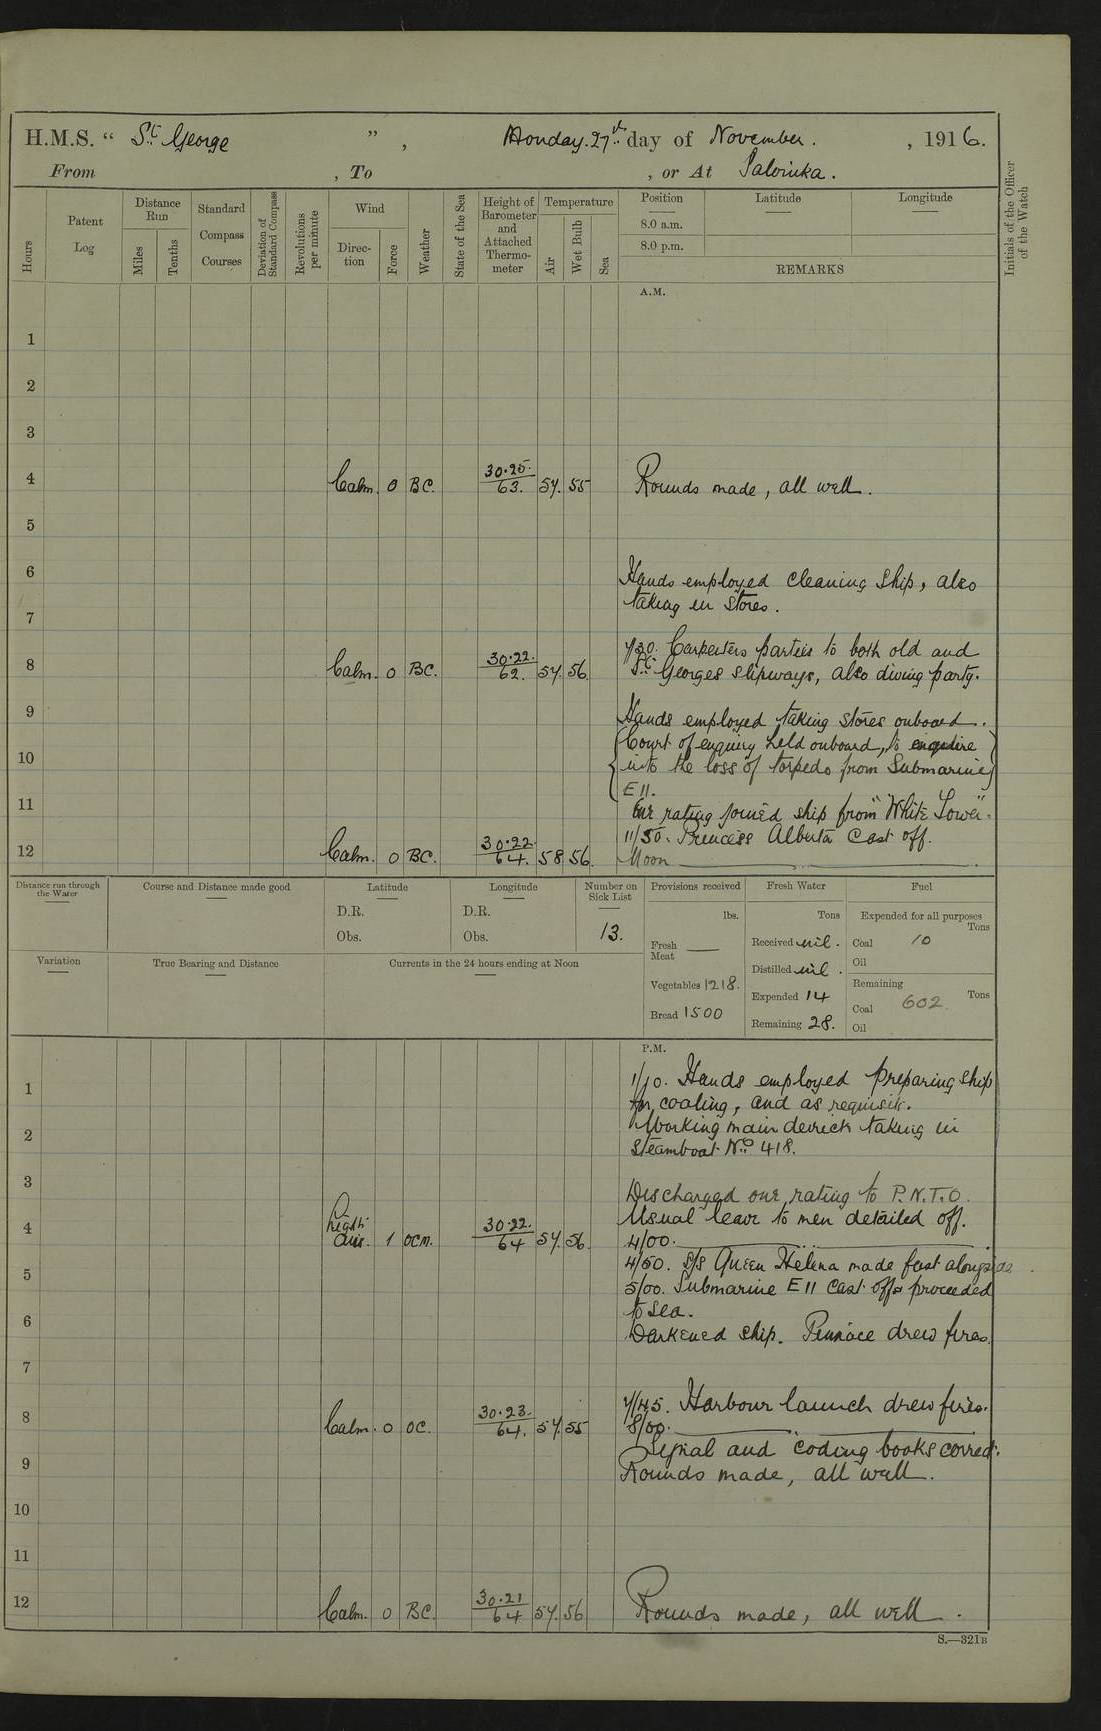 H.M.S. " St. George ", Monday. 27th day of November. , 1916.
From , To , or At Salonika.
Hours
Patent Log
Distance Run
Miles
Tenths
Standard Compass Courses
Deviation of Standard Compass
Revolutions per minute
Wind
Direction
Force
Weather
State of the Sea
Height of Barometer and Attached Thermometer
Temperature
Air
Wet Bulb
Sea
Position
8.0 a.m.
8.0 p.m.
Latitude
Longitude
REMARKS
Initials of the Officer of the Watch
A.M.
1
2
3
4 Calm. 0 BC. 30.25. 63. 57. 55 Rounds made, all well.
5
6 Hands employed cleaning ship, also
taking in stores.
7
7/30. Carpenters parties to both old and
8 Calm. 0 BC. 30.22. 62. 57. 56 St. Georges slipways, also diving party.
9 Hands employed taking stores onboard.
Court of enquiry held onboard, to enquire
10 into the loss of torpedo from Submarine
E11.
11 One rating joined ship from "White Tower".
11/50. Princess Alberta Cast off.
12 Calm. 0 BC. 30.22. 64. 58 56. Noon
Distance run through the Water
Course and Distance made good
Latitude
D.R.
Obs.
Longitude
D.R.
Obs.
Number on Sick List
13.
Provisions received
lbs.
Fresh Meat —
Vegetables 1218.
Bread 1500
Fresh Water
Tons
Received nil.
Distilled nil.
Expended 14
Remaining 28.
Fuel
Expended for all purposes
Tons
Coal 10
Oil
Remaining
Tons
Coal 602
Oil
Variation
True Bearing and Distance
Currents in the 24 hours ending at Noon
P.M.
1 1/10. Hands employed preparing ship
for coaling, and as requisite.
2 Working main derrick taking in
Steamboat No. 418.
3 Discharged one rating to P.N.T.O.
Usual leave to men detailed off.
4 Light airs. 1 OCM. 30.22. 64 57. 56. 4/00.
4/50. S/S Queen Helena made fast alongside.
5 5/00. Submarine E11 Cast off & proceeded
to sea.
6 Darkened ship. Pinnace drew fires.
7
7/45. Harbour launch drew fires.
8 Calm. 0 OC. 30.23. 64. 57. 55 8/00.
Signal and coding books correct.
9 Rounds made, all well.
10
11
12 Calm. 0 BC. 30.21 64 57. 56 Rounds made, all well.
S.—321B